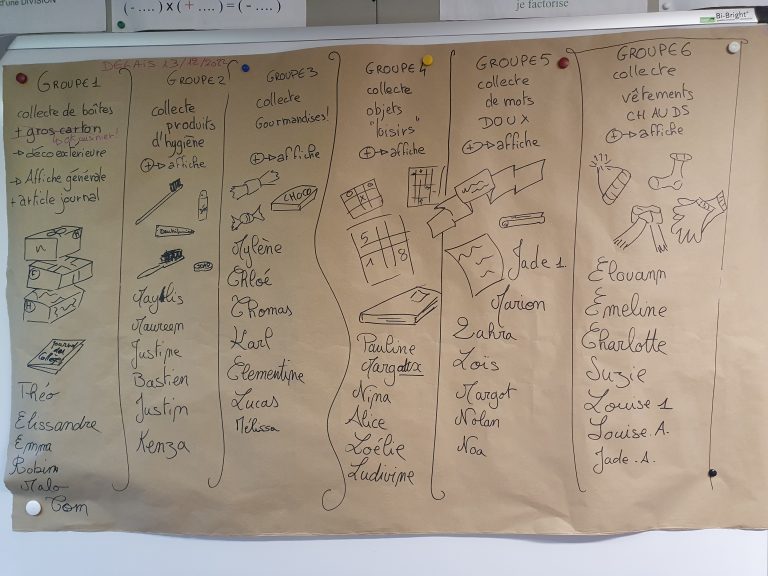 d'une DIVISION
(-....) x (+....) = (-....)
je factorise
Bi-Bright
DELAIS 13/12/2022
GROUPE 1
collecte de boîtes
+ gros carton
→ déco extérieure
→ Affiche générale
+ article journal
Théo
Elissandre
Emma
Robin
Malo
Tom
GROUPE 2
collecte
produits
d'hygiène
+ → affiche
Maylis
Maureen
Justine
Bastien
Justin
Kenza
GROUPE 3
collecte
Gourmandises!
+ → affiche
CHOCO
Mylène
Chloé
Thomas
Karl
Clémentine
Lucas
Mélissa
GROUPE 4
collecte
objets
"loisirs"
+ → affiche
5
1 8
Pauline
Margaux
Nina
Alice
Loélie
Ludivine
GROUPE 5
collecte
de mots
DOUX
+ → affiche
Jade 1.
Marion
Zahra
Loïs
Margot
Nolan
Noa
GROUPE 6
collecte
vêtements
CHAUDS
+ → affiche
Elouann
Emeline
Charlotte
Suzie
Louise 1
Louise.A.
Jade.A.